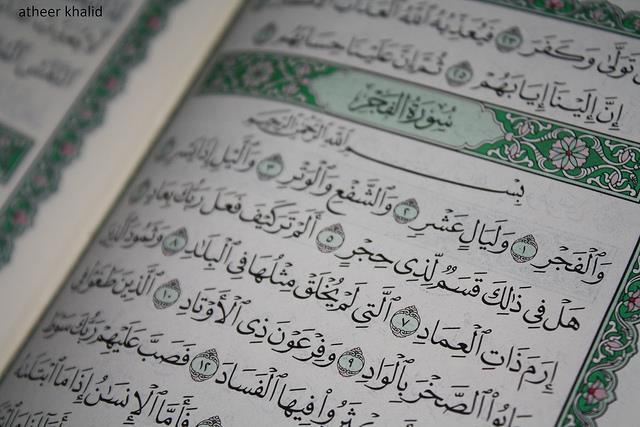 atheer khalid
تَوَلَّىٰ وَكَفَرَ ٢٣ فَيُعَذِّبُهُ ٱللَّهُ ٱلْعَذَابَ
إِنَّ إِلَيْنَآ إِيَابَهُمْ ٢٥ ثُمَّ إِنَّ عَلَيْنَا حِسَابَهُم
سُورَةُ الفَجْرِ
بِسْمِ ٱللَّهِ ٱلرَّحْمَٰنِ ٱلرَّحِيمِ
وَٱلْفَجْرِ ١ وَلَيَالٍ عَشْرٍ ٢ وَٱلشَّفْعِ وَٱلْوَتْرِ ٣ وَٱلَّيْلِ إِذَا يَسْرِ
هَلْ فِى ذَٰلِكَ قَسَمٌ لِّذِى حِجْرٍ ٥ أَلَمْ تَرَ كَيْفَ فَعَلَ رَبُّكَ بِعَادٍ
إِرَمَ ذَاتِ ٱلْعِمَادِ ٧ ٱلَّتِى لَمْ يُخْلَقْ مِثْلُهَا فِى ٱلْبِلَٰدِ ٨ وَثَمُودَ ٱلَّذِينَ
جَابُوا۟ ٱلصَّخْرَ بِٱلْوَادِ ٩ وَفِرْعَوْنَ ذِى ٱلْأَوْتَادِ ١٠ ٱلَّذِينَ طَغَوْا۟ فِى
فِيهَا ٱلْفَسَادَ ١٢ فَصَبَّ عَلَيْهِمْ رَبُّكَ سَوْطَ
فَأَمَّا ٱلْإِنسَٰنُ إِذَا مَا ٱبْتَلَىٰهُ